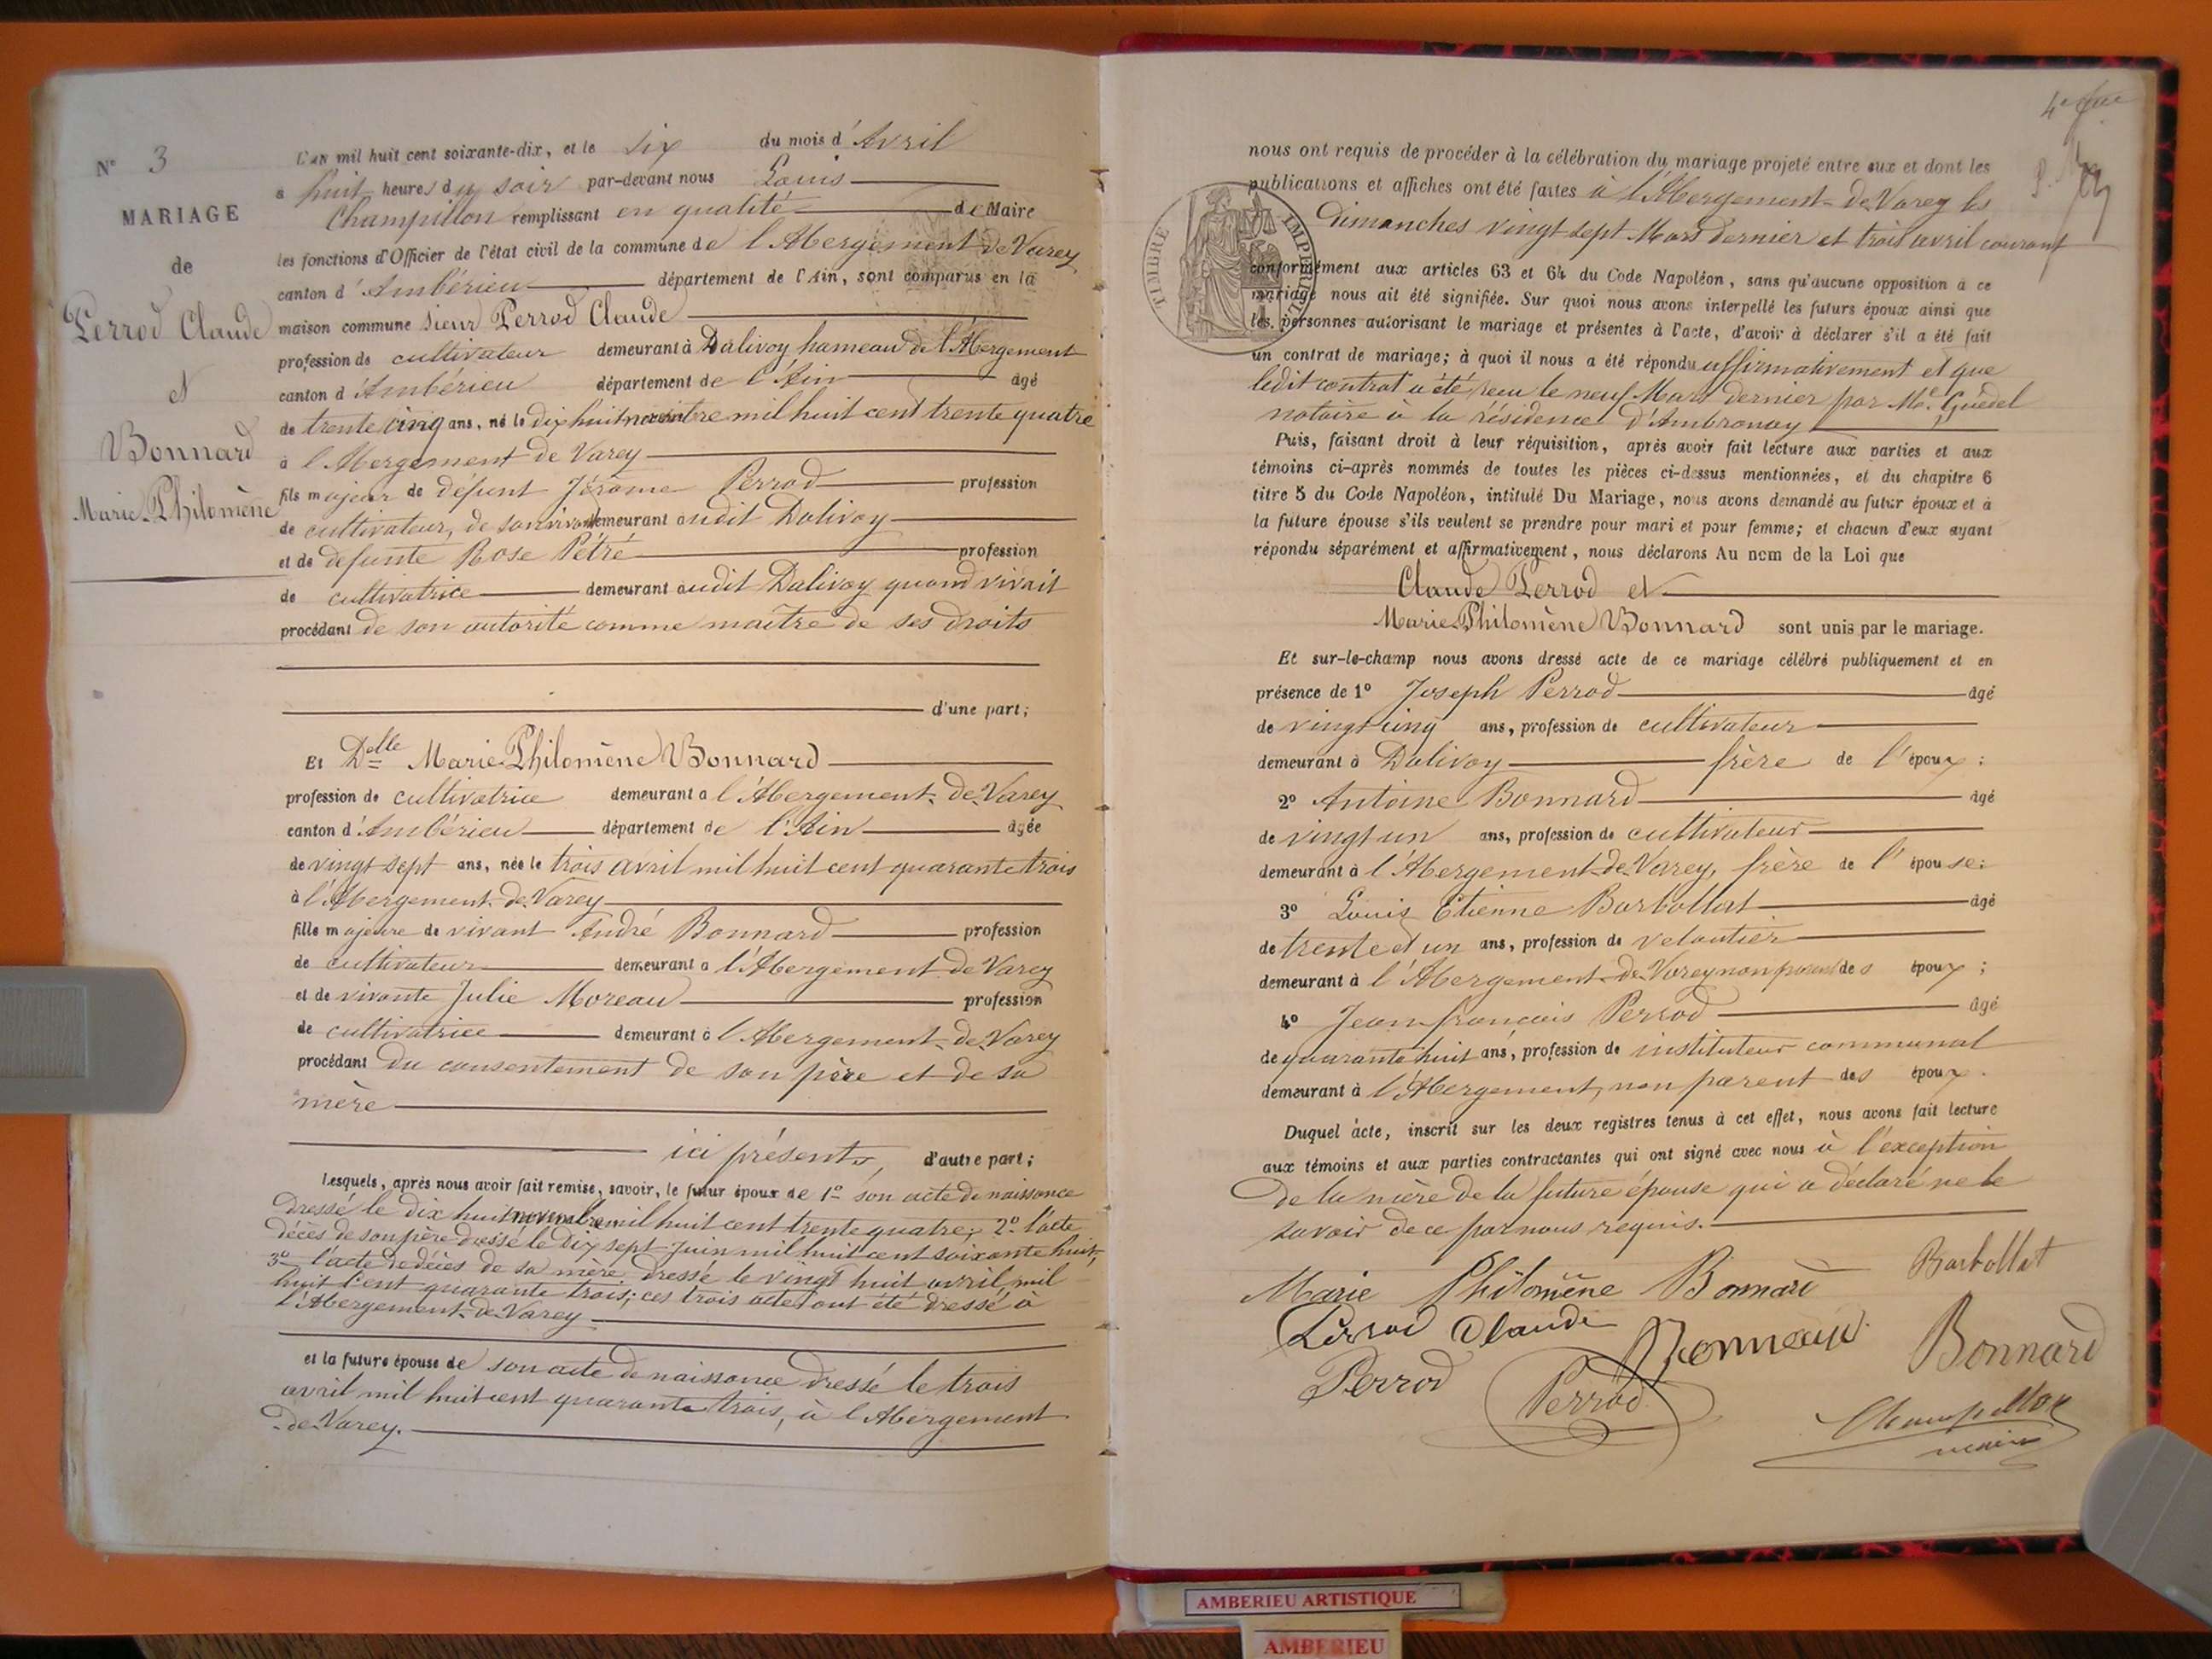 N° 3
MARIAGE
de
Perrod Claude
et
Bonnard
Marie-Philomène
L'AN mil huit cent soixante-dix, et le six du mois d'Avril
à huit heures du soir par-devant nous Louis
Champillon remplissant en qualité de Maire
les fonctions d'Officier de l'état civil de la commune de l'Abergement-de-Varey
canton d'Ambérieu département de l'Ain, sont comparus en la
maison commune sieur Perrod Claude
profession de cultivateur demeurant à Dalivoy hameau de l'Abergement
canton d'Ambérieu département de l'Ain âgé
de trente cinq ans, né le dix huit novembre mil huit cent trente quatre
à l'Abergement de Varey
fils majeur de défunt Jérome Perrod profession
de cultivateur, de son vivant demeurant audit Dalivoy
et de defunte Rose Pétré profession
de cultivatrice demeurant audit Dalivoy quand vivait
procédant de son autorité comme maître de ses droits
d'une part;
Et Delle Marie-Philomène Bonnard
profession de cultivatrice demeurant à l'Abergement-de-Varey
canton d'Ambérieu département de l'Ain âgée
de vingt sept ans, née le trois avril mil huit cent quarante trois
à l'Abergement-de-Varey
fille majeure de vivant André Bonnard profession
de cultivateur demeurant à l'Abergement de Varey
et de vivante Julie Moreau profession
de cultivatrice demeurant à l'Abergement-de-Varey
procédant du consentement de son père et de sa
mère
ici présents, d'autre part;
Lesquels, après nous avoir fait remise, savoir, le futur époux de 1° son acte de naissance
dressé le dix huit novembre mil huit cent trente quatre; 2° l'acte
décès de son père dressé le dix sept Juin mil huit cent soixante huit,
3° l'acte de décès de sa mère dressé le vingt huit avril mil
huit cent quarante trois; ces trois actes ont été dressé à
l'Abergement-de-Varey
et la future épouse de son acte de naissance dressé le trois
avril mil huit cent quarante trois, à l'Abergement
-de-Varey.
4e
nous ont requis de procéder à la célébration du mariage projeté entre eux et dont les
publications et affiches ont été faites à l'Abergement-de-Varey les
dimanches vingt sept Mars dernier et trois avril courant
TIMBRE IMPERIAL
conformément aux articles 63 et 64 du Code Napoléon, sans qu'aucune opposition à ce
mariage nous ait été signifiée. Sur quoi nous avons interpellé les futurs époux ainsi que
les personnes autorisant le mariage et présentes à l'acte, d'avoir à déclarer s'il a été fait
un contrat de mariage; à quoi il nous a été répondu affirmativement et que
ledit contrat a été reçu le neuf Mars dernier par Me Guédel
notaire à la résidence d'Ambronay
Puis, faisant droit à leur réquisition, après avoir fait lecture aux parties et aux
témoins ci-après nommés de toutes les pièces ci-dessus mentionnées, et du chapitre 6
titre 5 du Code Napoléon, intitulé Du Mariage, nous avons demandé au futur époux et à
la future épouse s'ils veulent se prendre pour mari et pour femme; et chacun d'eux ayant
répondu séparément et affirmativement, nous déclarons Au nom de la Loi que
Claude Perrod et
Marie-Philomène Bonnard sont unis par le mariage.
Et sur-le-champ nous avons dressé acte de ce mariage célébré publiquement et en
présence de 1° Joseph Perrod âgé
de vingt cinq ans, profession de cultivateur
demeurant à Dalivoy frère de l'époux;
2° Antoine Bonnard âgé
de vingt un ans, profession de cultivateur
demeurant à l'Abergement-de-Varey, frère de l'épouse;
3° Louis Etienne Barbollat âgé
de trente et un ans, profession de veloutier
demeurant à l'Abergement-de-Varey non parent des époux;
4° Jean françois Perrod âgé
de quarante huit ans, profession de instituteur communal
demeurant à l'Abergement, non parent des époux.
Duquel acte, inscrit sur les deux registres tenus à cet effet, nous avons fait lecture
aux témoins et aux parties contractantes qui ont signé avec nous à l'exception
de la mère de la future épouse qui a déclaré ne le
savoir de ce par nous requis.
Marie Philomène Bonnard Barbollat
Perrod Claude
Bonnard
Perrod Perrod
Champillon
maire
AMBERIEU ARTISTIQUE
AMBERIEU